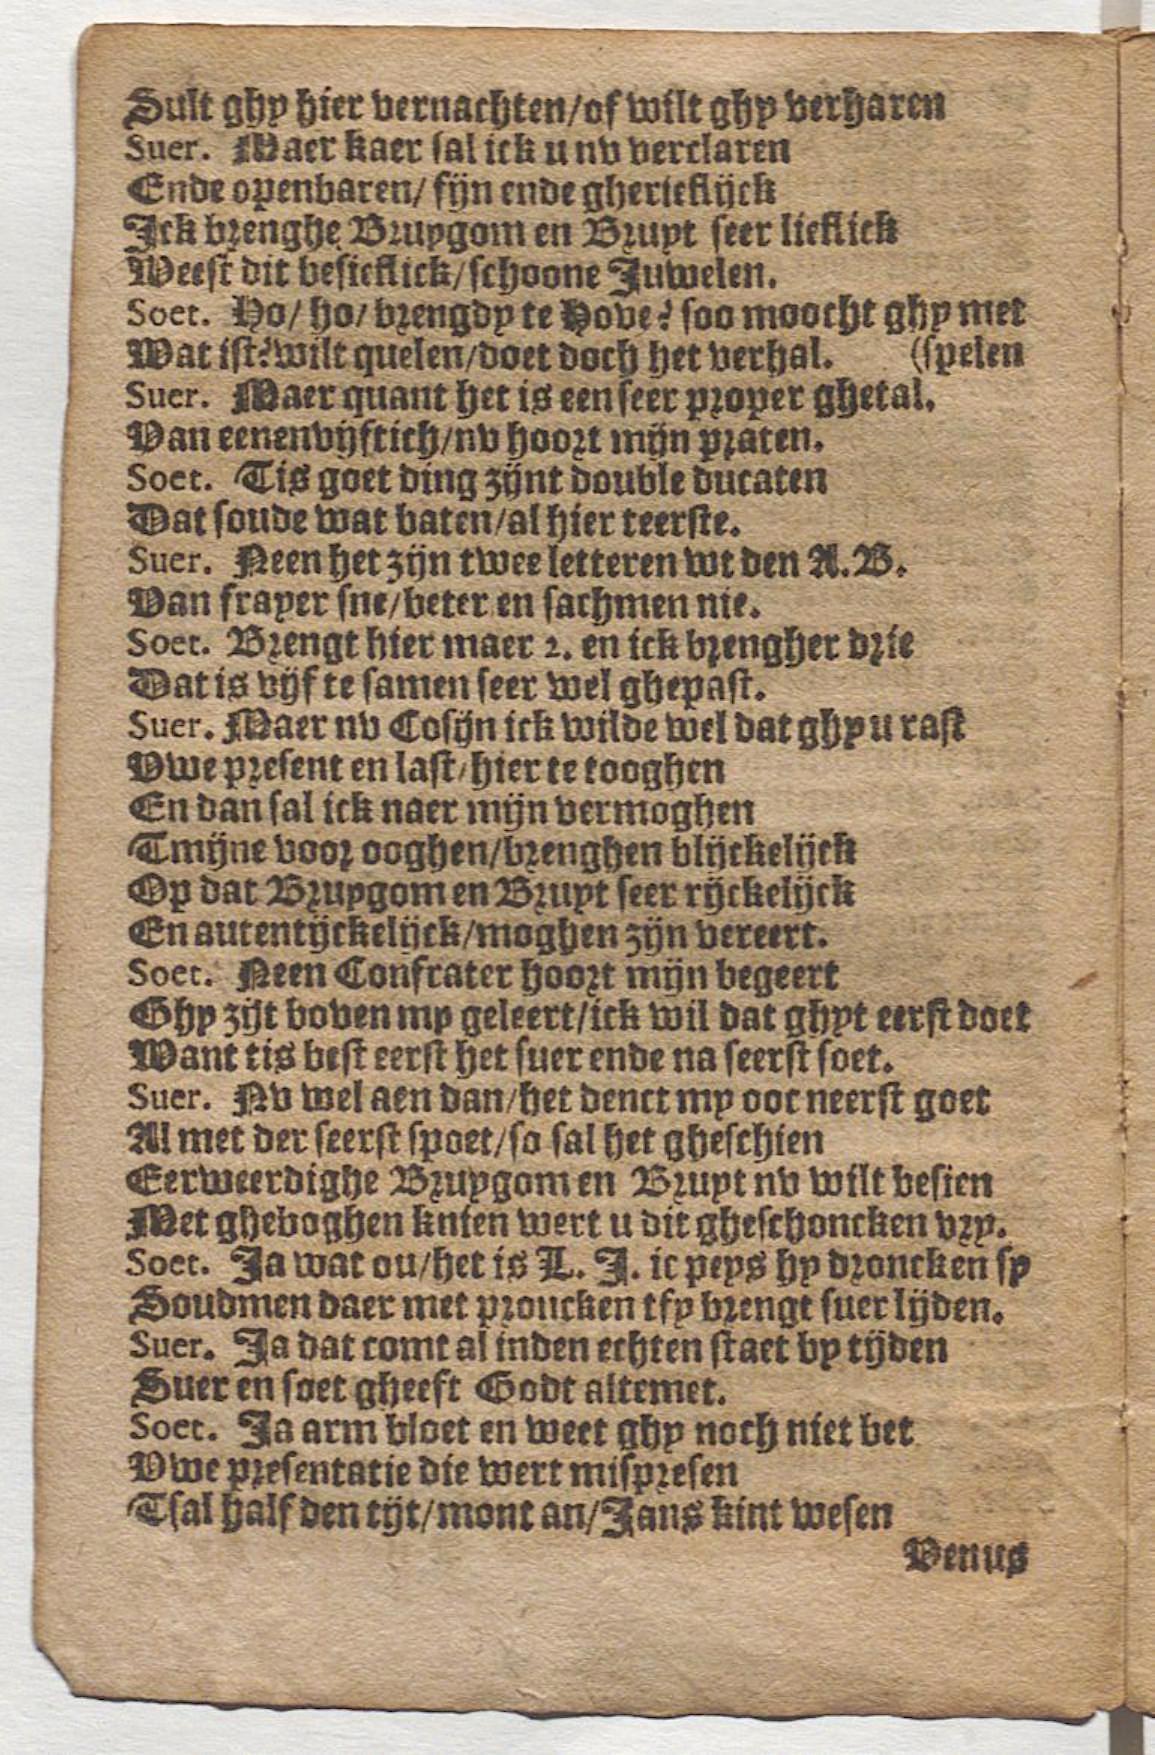 Sult ghy hier vernachten/of wilt ghy verharen
Suer. Maer kaer sal ick u nv verclaren
Ende openbaren/ fijn ende gherieflijck
Ick brenghe Bruygom en Bruyt seer lieflick
Weest dit besieflick/schoone Juwelen.
Soet. Ho/ ho/ brengdy te Hove? soo moocht ghy met
Wat ist? wilt quelen/doet doch het verhal. (spelen
Suer. Maer quant het is een seer proper ghetal.
Van eenenvijftich/nv hoort mijn praten.
Soet. Tis goet ding zijnt double ducaten
Dat soude wat baten/al hier teerste.
Suer. Neen het zijn twee letteren wt den A.B.
Van frayer sne/beter en sachmen nie.
Soet. Brengt hier maer 2. en ick brengher drie
Dat is vijf te samen seer wel ghepast.
Suer. Maer nv Cosijn ick wilde wel dat ghy u rast
Vwe present en last/hier te tooghen
En dan sal ick naer mijn vermoghen
Tmijne voor ooghen/brenghen blijckelijck
Op dat Bruygom en Bruyt seer rijckelijck
En autentijckelijck/moghen zijn vereert.
Soet. Neen Confrater hoort mijn begeert
Ghy zijt boven my geleert/ick wil dat ghyt eerst doet
Want tis best eerst het suer ende na seerst soet.
Suer. Nv wel aen dan/het denct my oot neerst goet
Al met der seerst spoet/so sal het gheschien
Eerweerdighe Bruygom en Bruyt nv wilt besien
Met gheboghen knien wert u dit gheschoncken vry.
Soet. Ja wat ou/het is L. J. ic peys hy droncken sy
Soudmen daer met proncken tfy brengt suer lijden.
Suer. Ja dat comt al inden echten staet by tijden
Suer en soet gheeft Godt altemet.
Soet. Ja arm bloet en weet ghy noch niet bet
Vwe presentatie die wert mispresen
Tsal half den tijt/mont an/Jans kint wesen
Venus